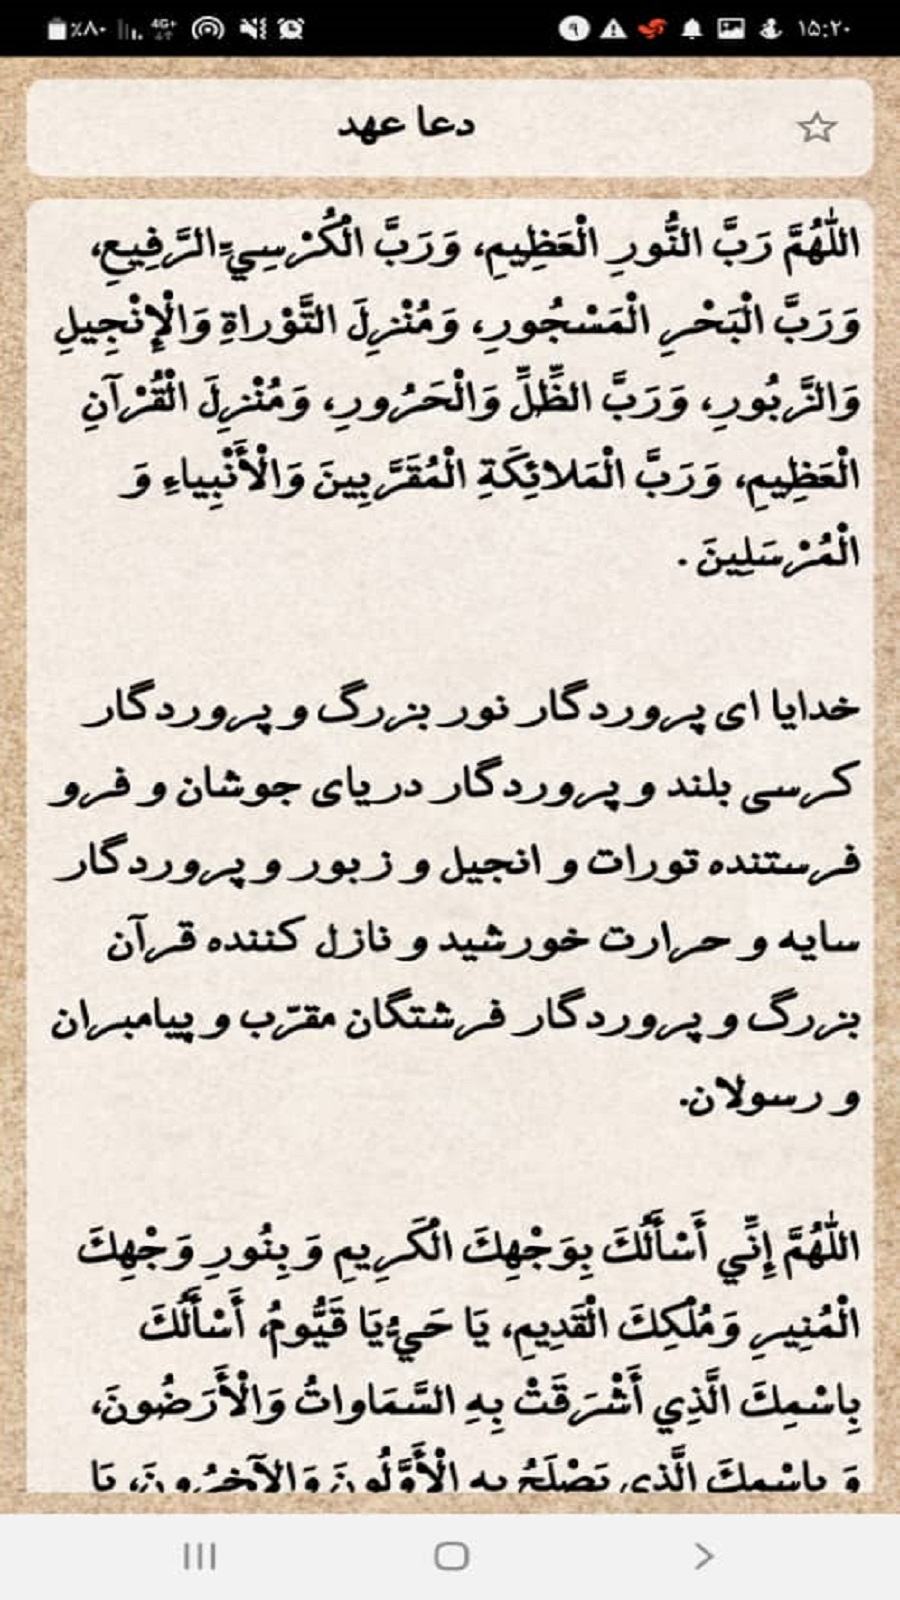 ٪۸۰ 4G+ ۹ ۱۵:۲۰
دعا عهد
اللّٰهُمَّ رَبَّ النُّورِ الْعَظِيمِ، وَرَبَّ الْكُرْسِيِّ الرَّفِيعِ،
وَرَبَّ الْبَحْرِ الْمَسْجُورِ، وَمُنْزِلَ التَّوْراةِ وَالْإِنْجِيلِ
وَالزَّبُورِ، وَرَبَّ الظِّلِّ وَالْحَرُورِ، وَمُنْزِلَ الْقُرْآنِ
الْعَظِيمِ، وَرَبَّ الْمَلائِكَةِ الْمُقَرَّبِينَ وَالْأَنْبِياءِ وَ
الْمُرْسَلِينَ .
خدایا ای پروردگار نور بزرگ و پروردگار
کرسی بلند و پروردگار دریای جوشان و فرو
فرستنده تورات و انجیل و زبور و پروردگار
سایه و حرارت خورشید و نازل کننده قرآن
بزرگ و پروردگار فرشتگان مقرّب و پیامبران
و رسولان.
اللّٰهُمَّ إِنِّي أَسْأَلُكَ بِوَجْهِكَ الْكَرِيمِ وَبِنُورِ وَجْهِكَ
الْمُنِيرِ وَمُلْكِكَ الْقَدِيمِ، يَا حَيُّ يَا قَيُّومُ، أَسْأَلُكَ
بِاسْمِكَ الَّذِي أَشْرَقَتْ بِهِ السَّمَاواتُ وَالْأَرَضُونَ،
وَ بِاسْمِكَ الَّذِي يَصْلَحُ بِهِ الْأَوَّلُونَ وَالْآخِرُونَ، يَا